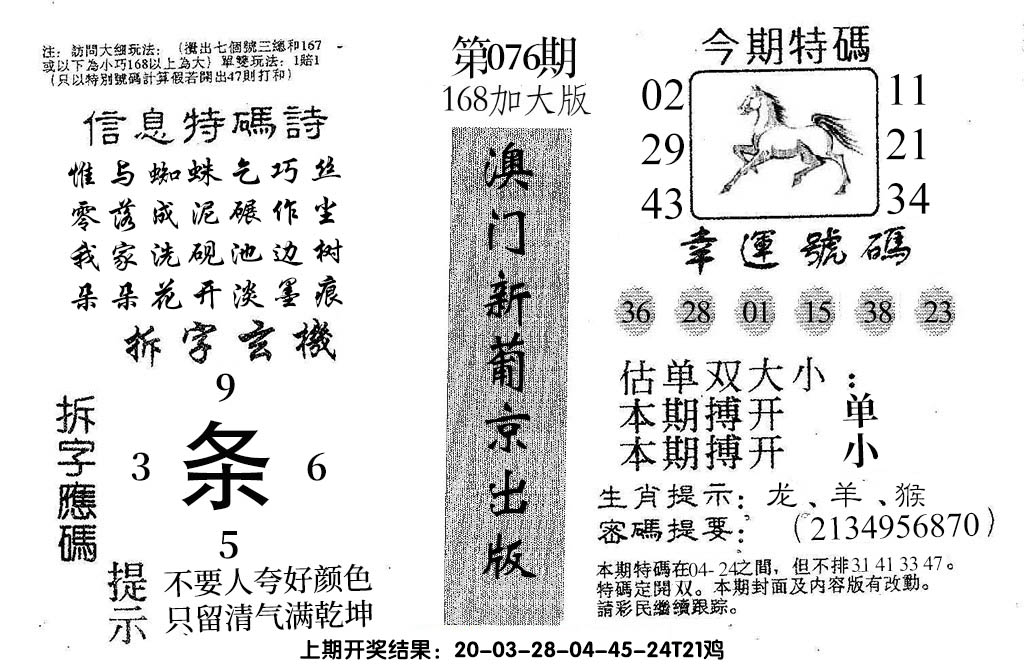 注：訪問大細玩法：（攪出七個號三總和167
或以下為小巧168以上為大）單雙玩法：1賠1
（只以特別號碼計算假若開出47則打和）
信息特碼詩
惟与蜘蛛乞巧丝
零落成泥碾作尘
我家洗砚池边树
朵朵花开淡墨痕
拆字玄機
9
3 条 6
5
拆字應碼
提示
不要人夸好颜色
只留清气满乾坤
第076期
168加大版
澳门新葡京出版
今期特碼
02 11
29 21
43 34
幸運號碼
36 28 01 15 38 23
估单双大小：
本期搏开 单
本期搏开 小
生肖提示：龙、羊、猴
密碼提要：（2134956870）
本期特碼在04-24之間，但不排31 41 33 47。
特碼定開双。本期封面及内容版有改動。
請彩民繼續跟踪。
上期开奖结果：20-03-28-04-45-24T21鸡